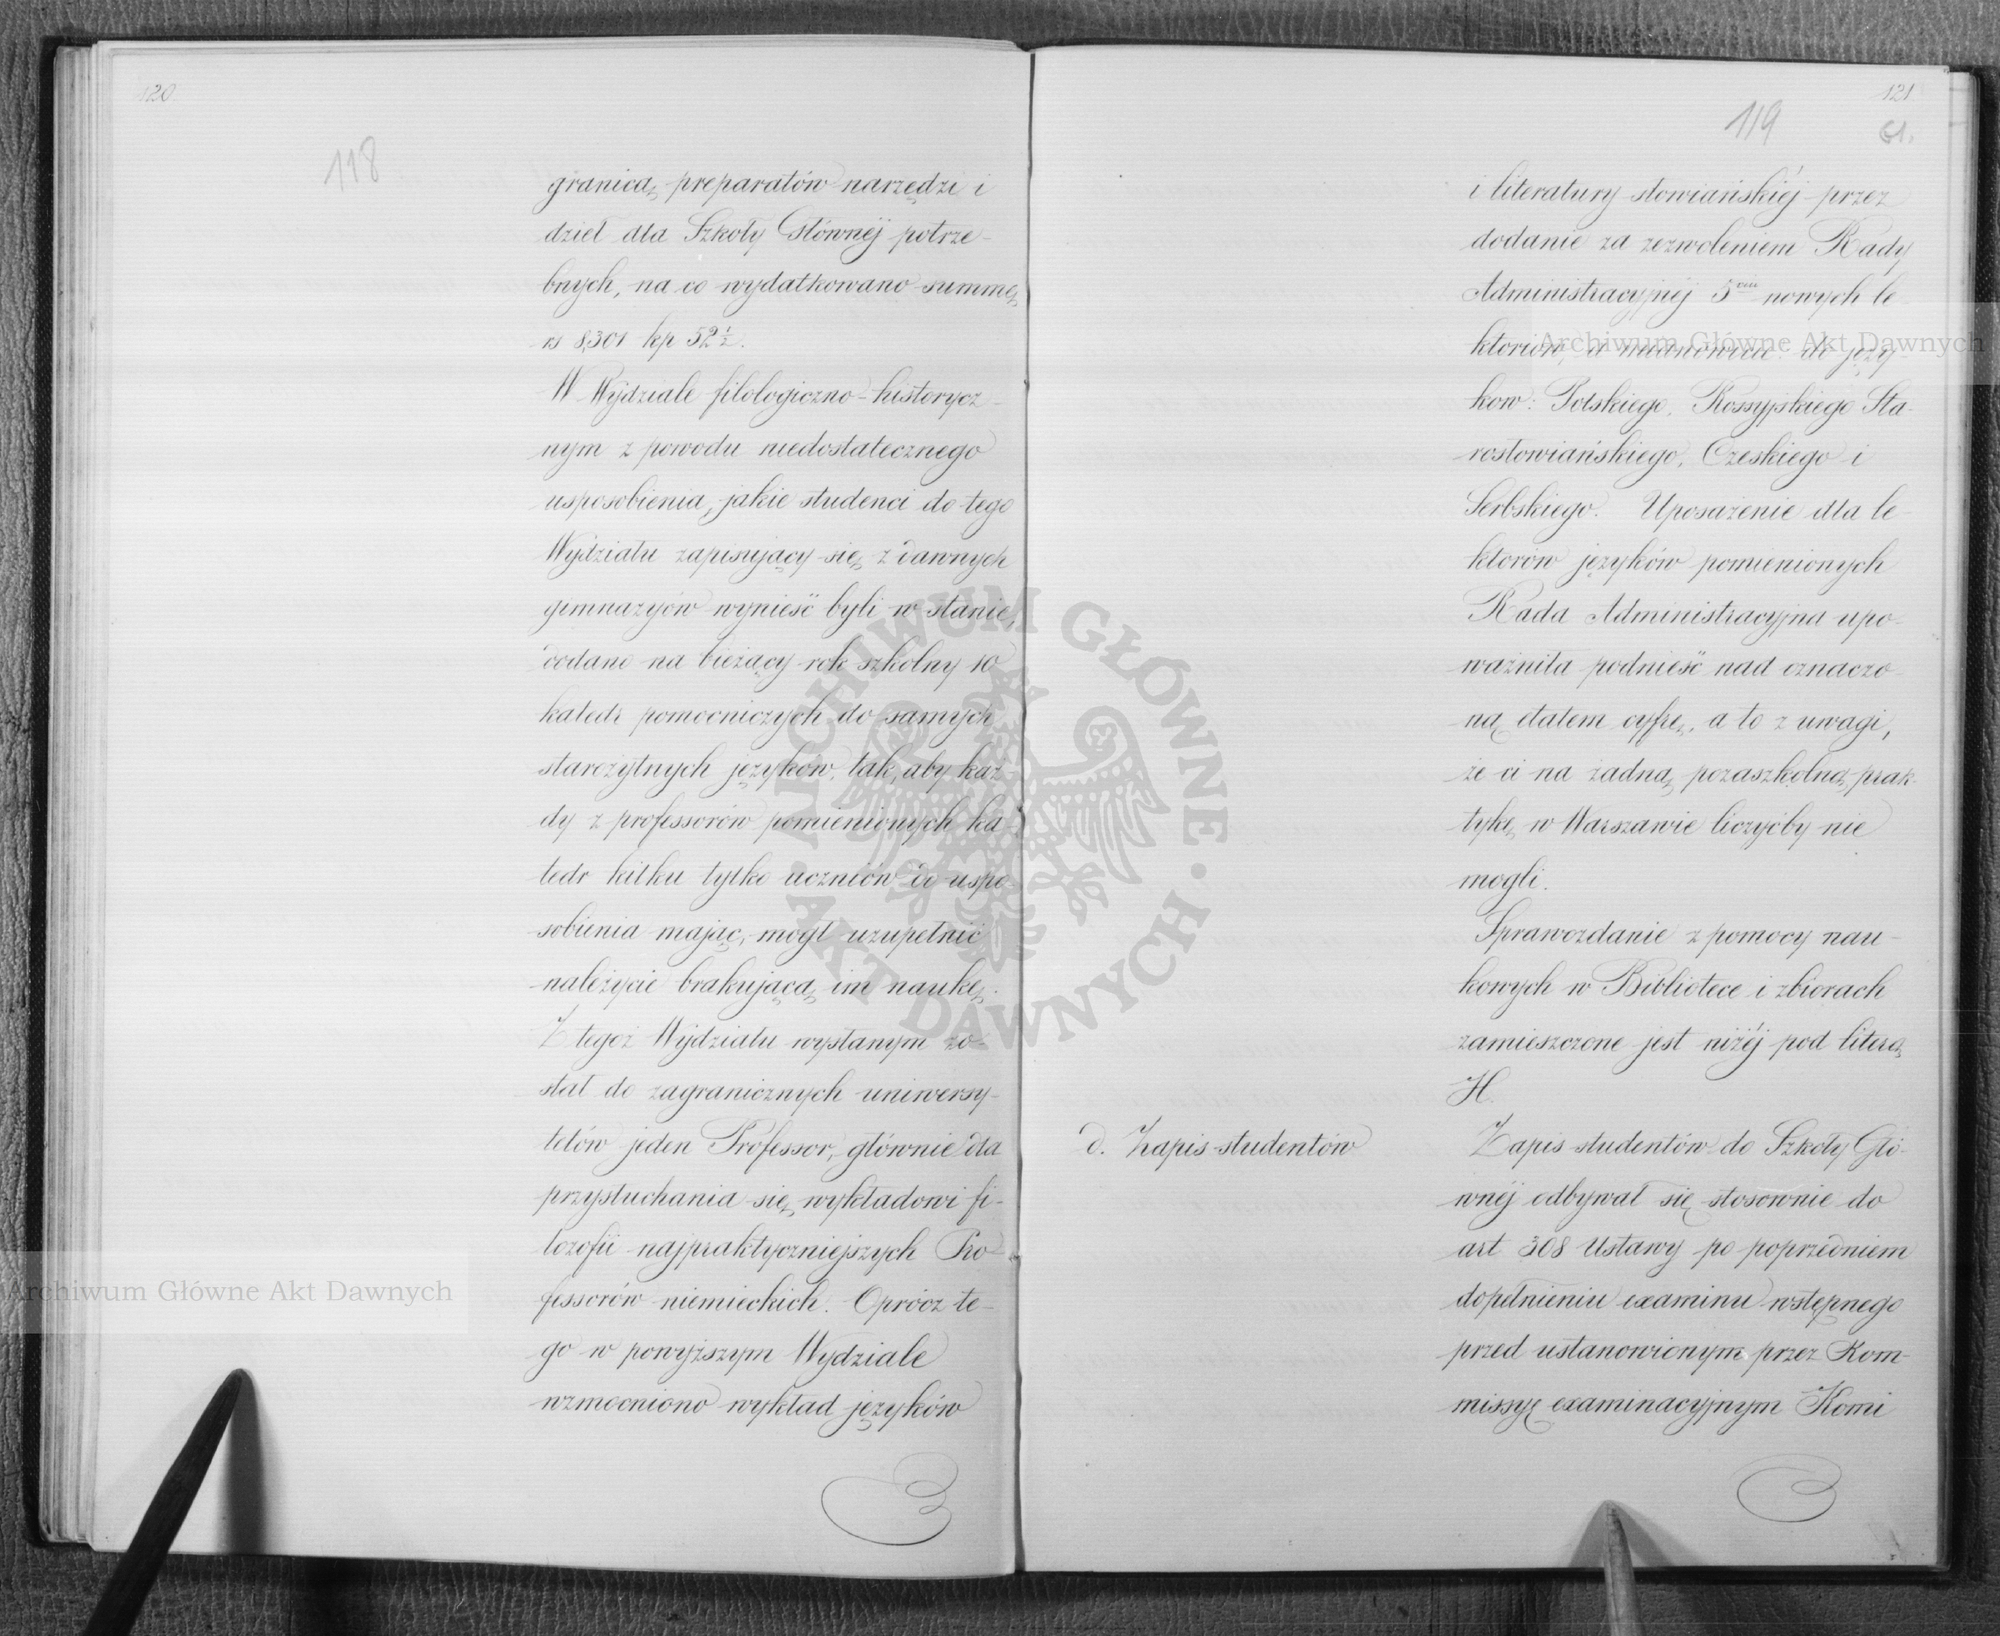 120.
118
granicą preparatów narzędzi i
dzieł dla Szkoły Głównéj potrze-
bnych, na co wydatkowano summę
rs 8,301 kp 52 1/2.
W Wydziale filologiczno-historycz-
nym z powodu niedostatecznego
usposobienia, jakie studenci do tego
Wydziału zapisujący się z dawnych
gimnazyów wynieść byli w stanie,
dodano na bieżący rok szkolny 10
katedr pomocniczych do samych
starożytnych języków, tak, aby każ-
dy z professorów pomienionych ka-
tedr kilku tylko uczniów do uspo-
sobienia mając, mógł uzupełnić
należycie brakującą im naukę.
Z tegoż Wydziału wysłanym zo-
stał do zagranicznych uniwersy-
tetów jeden Professor, głównie dla
przysłuchania się wykładowi fi-
lozofii najpraktyczniejszych Pro-
fessorów niemieckich. Oprócz te-
go w powyższym Wydziale
wzmocniono wykład języków
121
119
61.
i literatury słowiańskiéj przez
dodanie za zezwoleniem Rady
Administracyjnéj 5ciu nowych le-
ktorów, a mianowicie: do języ-
ków: Polskiego, Rossyjskiego Sta-
rosłowiańskiego, Czeskiego i
Serbskiego. Uposażenie dla le-
ktorów języków pomienionych
Rada Administracyjna upo-
ważniła podnieść nad oznaczo-
ną etatem cyfrę, a to z uwagi,
że ci na żadną pozaszkolną prak-
tykę w Warszawie liczyćby nie
mogli.
Sprawozdanie z pomocy nau-
kowych w Bibliotece i zbiorach
zamieszczone jest niżéj pod literą
H.
d. Zapis studentów
Zapis studentów do Szkoły Głó-
wnéj odbywał się stosownie do
art 308 Ustawy po poprzedniem
dopełnieniu examinu wstępnego
przed ustanowionym przez Kom-
missyę examinacyjnym Komi
Archiwum Główne Akt Dawnych
Archiwum Główne Akt Dawnych
ARCHIWUM GŁÓWNE · AKT DAWNYCH ·